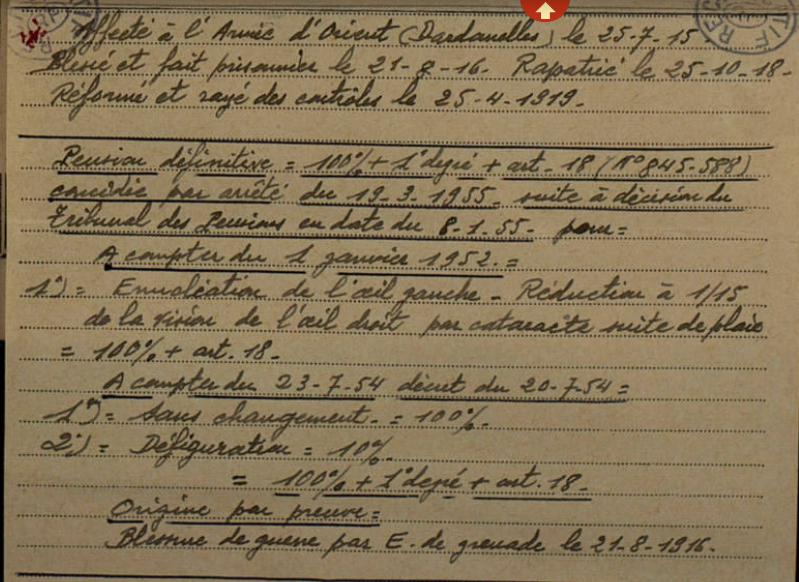 Affecté à l'Armée d'Orient (Dardanelles) le 25-7-15
Blessé et fait prisonnier le 21-8-16. Rapatrié le 25-10-18.
Réformé et rayé des contrôles le 25-4-1919.
Pension définitive = 100% + 1° degré + art. 18 (N° 845-588)
concédée par arrêté du 19-3-1955. suite à décision du
Tribunal des Pensions en date du 8-1-55. pour=
A compter du 1 janvier 1952.=
1°)= Enucléation de l'œil gauche - Réduction à 1/15
de la vision de l'œil droit par cataracte suite de plaie
= 100% + art. 18.
A compter du 23-7-54 décret du 20-7-54=
1°)= Sans changement. = 100%.
2°)= Défiguration = 10%.
= 100% + 1° degré + art. 18.
Origine par preuve=
Blessure de guerre par E. de grenade le 21-8-1916.